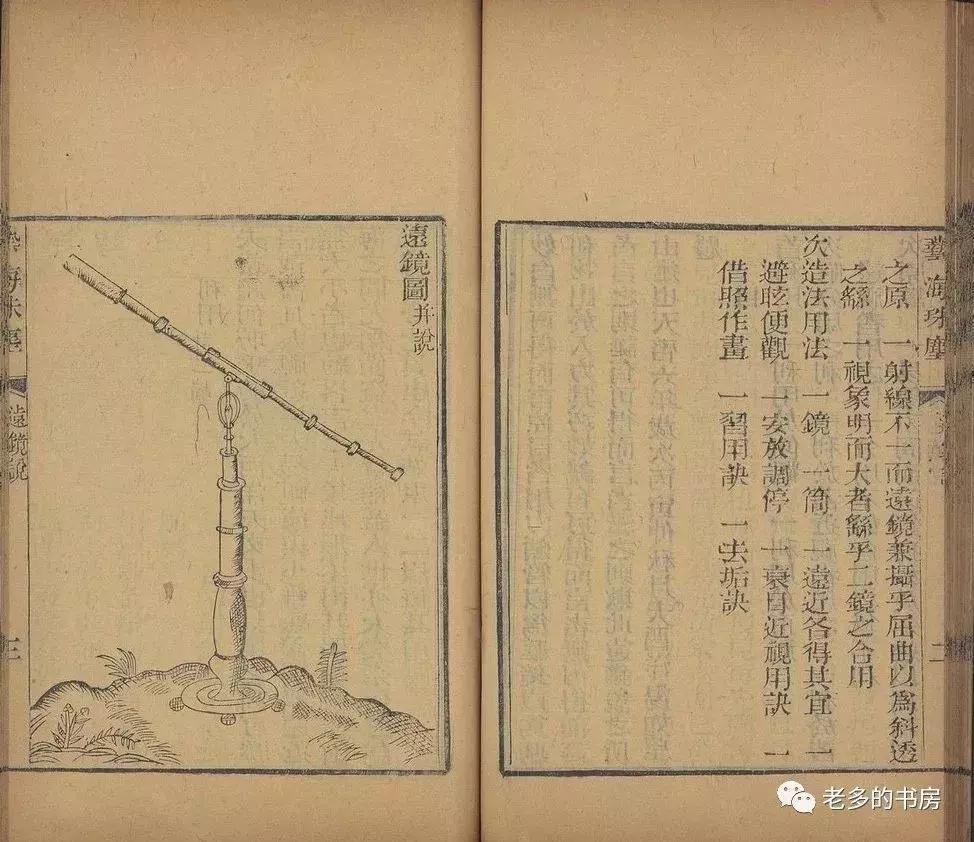 藝海珠塵
二
之原 一射線不一而遠鏡兼攝乎屈曲以爲斜透
之繇 一視象明而大者繇乎二鏡之合用
次造法用法 一鏡 一筒 一遠近各得其宜 一
避眩便觀 一安放調停 一衰目近視用訣 一
借照作畫 一習用訣 一去垢訣
遠鏡圖并說
遠鏡說
三
老多的书房